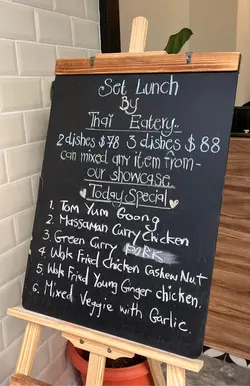 Set Lunch
By
Thai Eatery.
2 dishes $78 3 dishes $88
can mixed any item from-
our showcase.
Today Special
1. Tom Yum Goong
2. Massaman Curry Chicken
3. Green Curry PORK
4. Wok Fried Chicken Cashew Nut
5. Wok Fried Young Ginger chicken.
6. Mixed Veggie with Garlic.